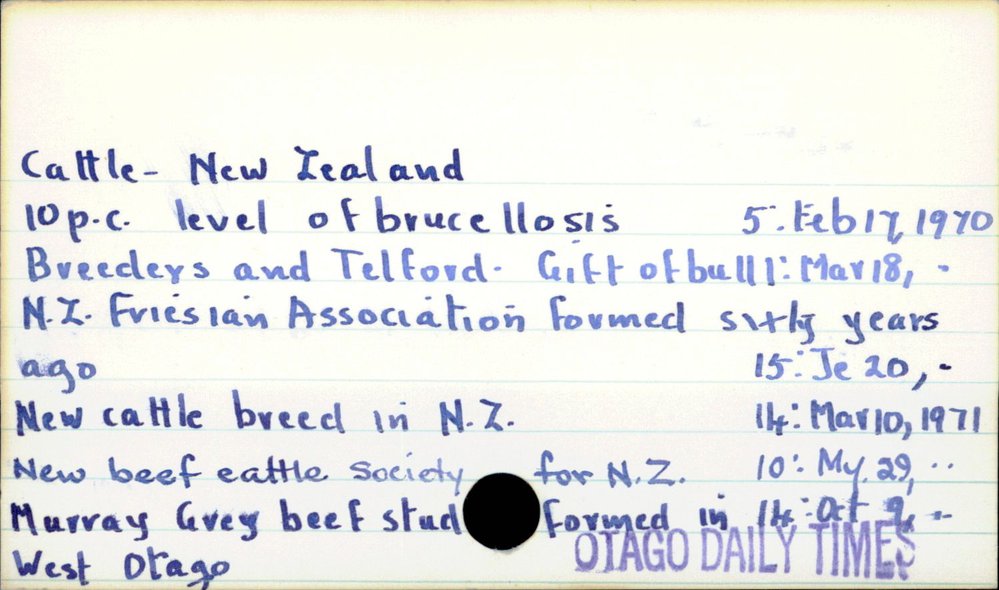 Cattle - New Zealand
10 p.c. level of brucellosis 5: Feb 17, 1970
Breeders and Telford. Gift of bull 1: Mar 18, -
N.Z. Friesian Association formed sixty years
ago 15: Je 20, -
New cattle breed in N.Z. 14: Mar 10, 1971
New beef cattle society for N.Z. 10: My. 29, ..
Murray Grey beef stud formed in 14: Oct 9, --
West Otago
OTAGO DAILY TIMES